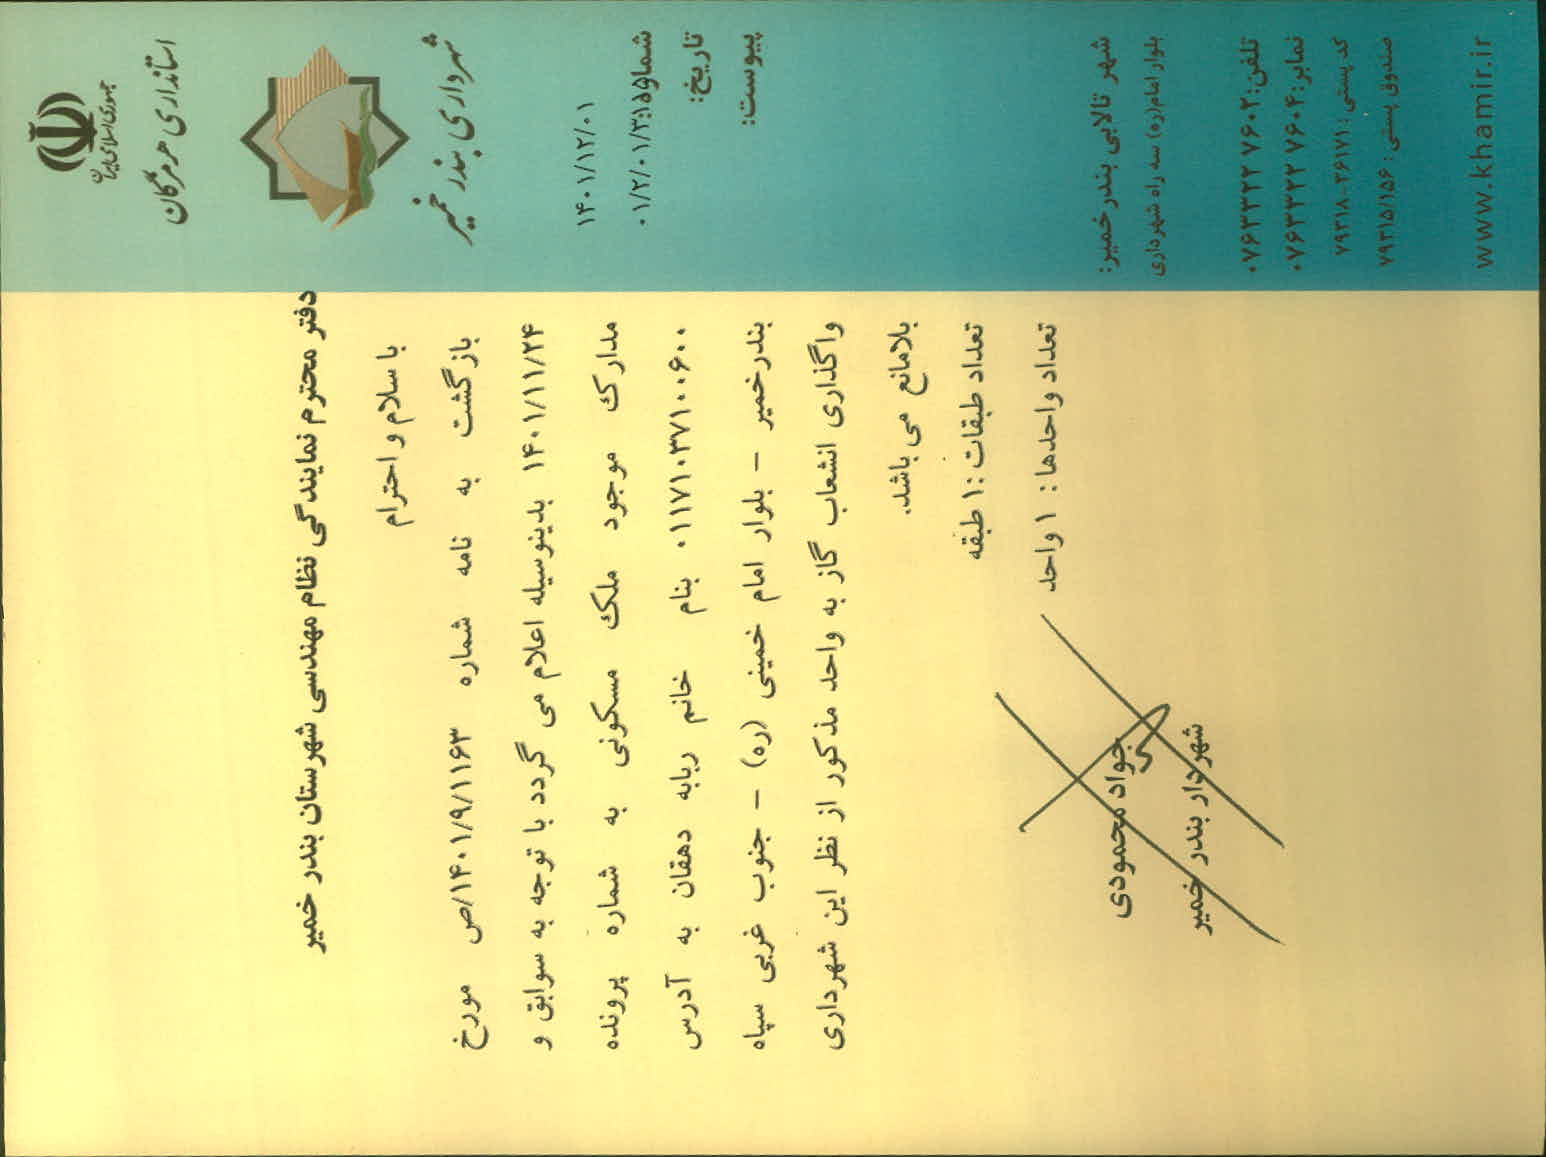 جمهوری اسلامی ایران
استانداری هرمزگان
شهرداری بندر خمیر
۱۴۰۱/۱۲/۰۱
شماره: ۰۱/۲/۰۱/۳۱۵۵
تاریخ:
پیوست:
دفتر محترم نمایندگی نظام مهندسی شهرستان بندر خمیر
با سلام و احترام
بازگشت به نامه شماره ۱۴۰۱/۹/۱۱۶۳/ص مورخ
۱۴۰۱/۱۱/۲۴ بدینوسیله اعلام می گردد با توجه به سوابق و
مدارک موجود ملک مسکونی به شماره پرونده
۰۱۱۷۱۰۳۷۱۰۰۶۰۰ بنام خانم ربابه دهقان به آدرس
بندرخمیر – بلوار امام خمینی (ره) – جنوب غربی سپاه
واگذاری انشعاب گاز به واحد مذکور از نظر این شهرداری
بلامانع می باشد.
تعداد طبقات :۱ طبقه
تعداد واحدها : ۱ واحد
جواد محمودی
شهردار بندر خمیر
شهر تالابی بندر خمیر:
بلوار امام(ره) سه راه شهرداری
تلفن: ۰۷۶۳۳۲۲ ۷۶۰۲
نمابر: ۰۷۶۳۳۲۲ ۷۶۰۴
کد پستی: ۷۹۳۱۸-۲۶۱۷۱
صندوق پستی: ۷۹۳۱۵/۱۵۶
www.khamir.ir